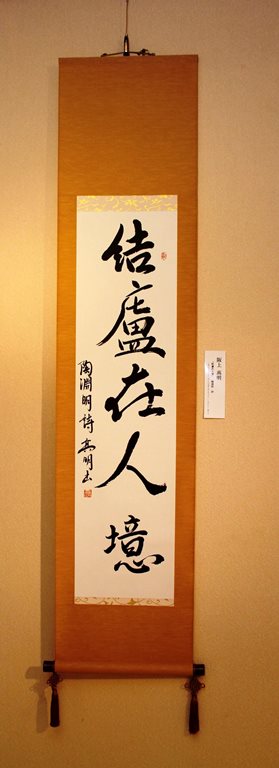 結廬在人境
陶淵明詩 高明書
阪上 高明